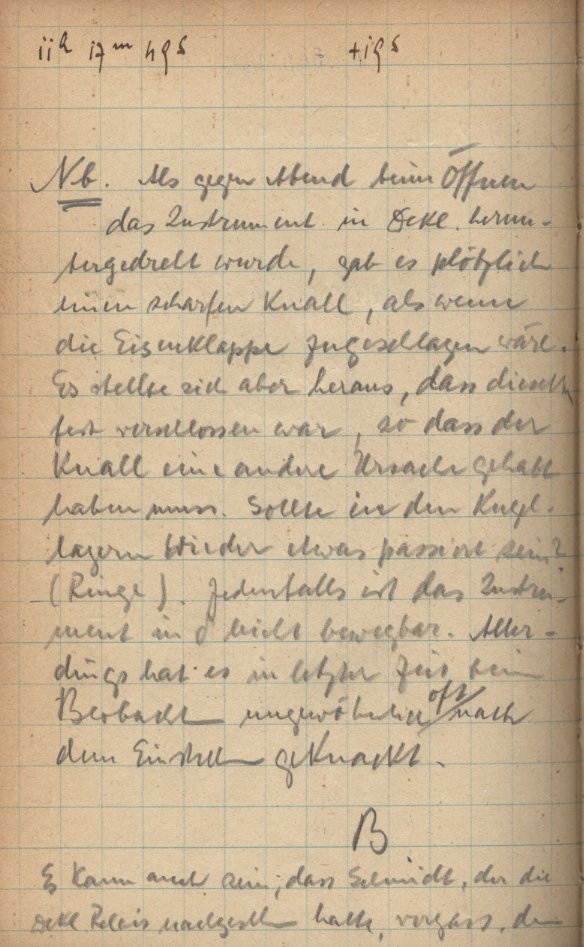 11h 17m 49s +19s
Nb. Als gegen Abend beim Öffnen
das Instrument in Dekl. herun-
tergedreht wurde, gab es plötzlich
einen scharfen Knall, als wenn
die Eisenklappe zugeschlagen wäre.
Es stellte sich aber heraus, dass dieselbe
fest verschlossen war, so dass der
Knall eine andere Ursache gehabt
haben muss. Sollte in den Kugel-
lagern wieder etwas passiert sein?
(Ringe). Jedenfalls ist das Instru-
ment in δ leicht bewegbar. Aller-
dings hat es in letzter Zeit beim
Beobacht ungewöhnlich oft nach
dem Einstellen geknackt.
B
Es kann auch sein, dass Schmidt, der die
Dekl Relais nachgestellt hatte, vergass, den